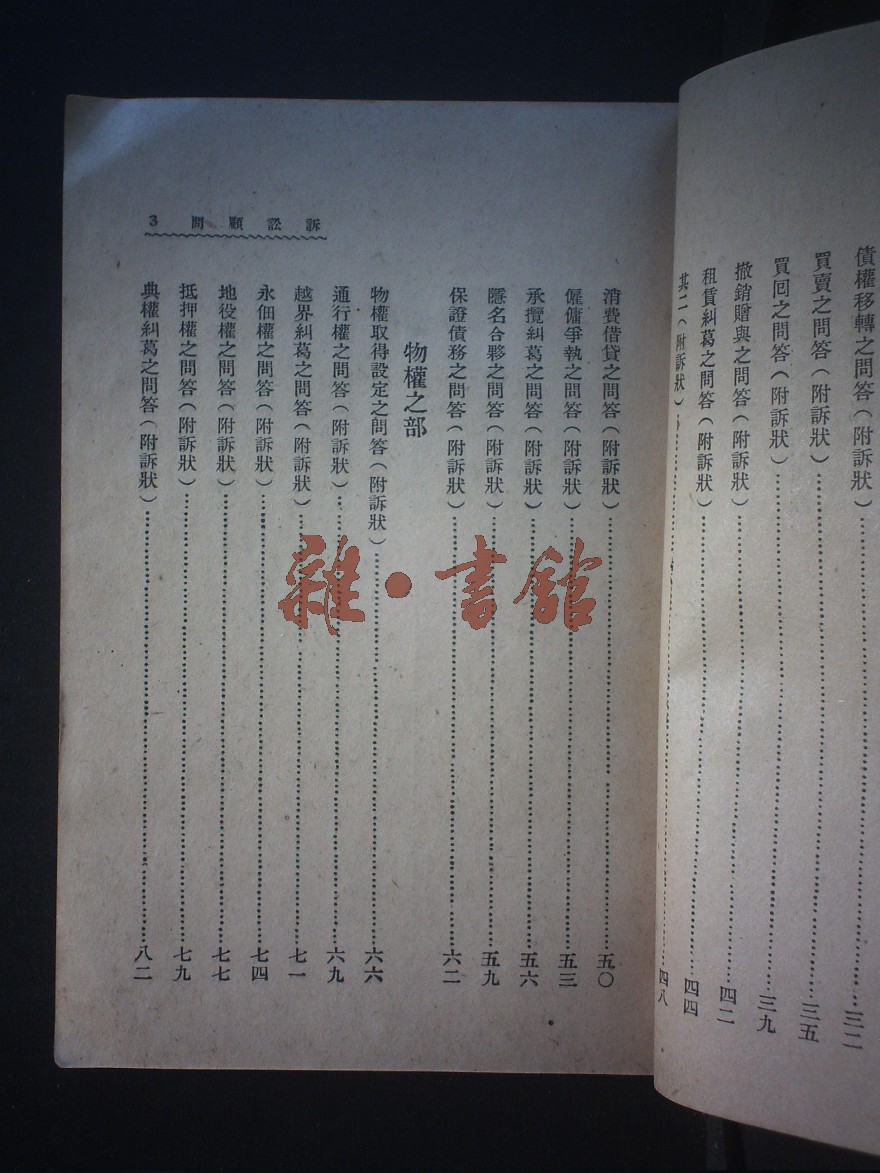 債權移轉之問答（附訴狀）……三二
買賣之問答（附訴狀）……三五
買回之問答（附訴狀）……三九
撤銷贈與之問答（附訴狀）……四二
租賃糾葛之問答（附訴狀）……四四
其二（附訴狀）……四八
訴訟顧問 3
消費借貸之問答（附訴狀）……五〇
僱傭爭執之問答（附訴狀）……五三
承攬糾葛之問答（附訴狀）……五六
隱名合夥之問答（附訴狀）……五九
保證債務之問答（附訴狀）……六二
物權之部
物權取得設定之問答（附訴狀）……六六
通行權之問答（附訴狀）……六九
越界糾葛之問答（附訴狀）……七一
永佃權之問答（附訴狀）……七四
地役權之問答（附訴狀）……七七
抵押權之問答（附訴狀）……七九
典權糾葛之問答（附訴狀）……八二
雜·書館